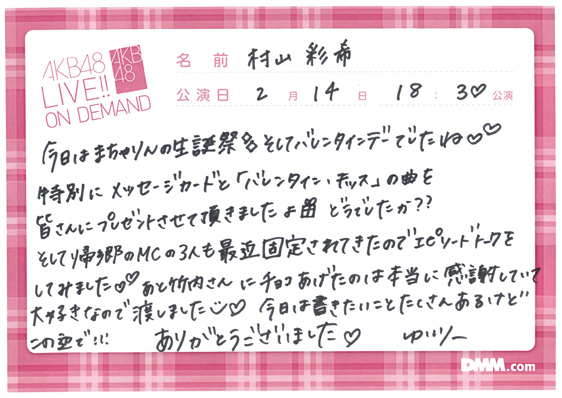 AKB48
LIVE!!
ON DEMAND
AKB
48
名前 村山 彩希
公演日 2月14日 18:30♡公演
今日はまちゃりんの生誕祭&そしてバレンタインデーでしたね♡♡
特別に メッセージカードと「バレンタイン・キッス」の曲を
皆さんにプレゼントさせて頂きましたよ どうでしたか??
そして帰郷のMCの3人も最近固定されてきたのでエピソードトークを
してみました♡♡ あと竹内さんにチョコあげたのは本当に感謝していて
大好きなので渡しました♡ 今日は書きたいことたくさんあるけど
この辺で!!! ありがとうございました♡ ゆいりー
DMM.com